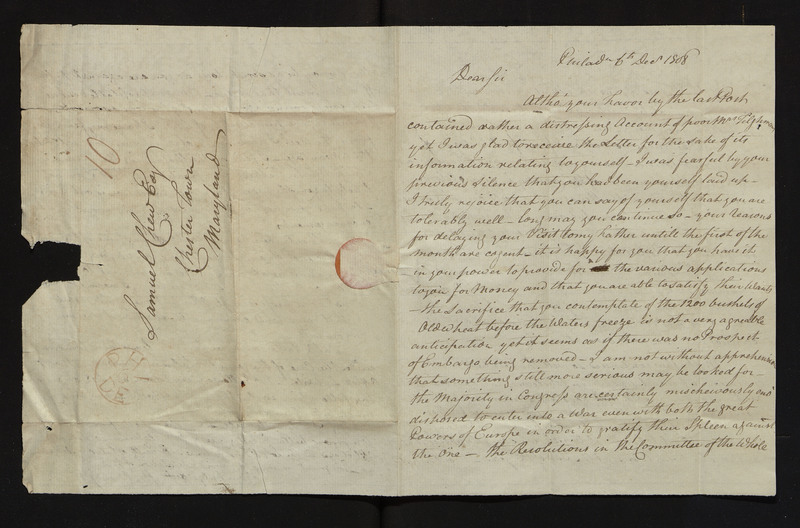 10
Samuel Chew Esqr
Chester Town
Maryland
Philada 6th Decr 1808
Dear Sir
Altho' your favor by the last Post
contained rather a distressing Account of poor Mrs Tilghman
yet I was glad to receive the Letter for the sake of its
information relating to yourself - I was fearful by your
previous silence that you had been yourself laid up -
I truly rejoice that you can say of yourself that you are
tolerably well - long may you continue so - your reasons
for delaying your Visit to my father untill the first of the
month are cogent - it is happy for you that you have it
in your power to provide for the various applications
to you for Money and that you are able to satisfy their Wants
- the sacrifice that you contemplate of the 1200 bushels of
Old wheat before the Waters freeze is not a very agreeable
anticipation yet it seems as if there was no Prospect
of Embargo being removed - I am not without apprehension
that something still more serious may be looked for -
the Majority in Congress are certainly mischievously eno'
disposed to enter into a War even with both the great
Powers of Europe in order to gratify their Spleen against
the one - the Resolutions in the Committee of the Whole